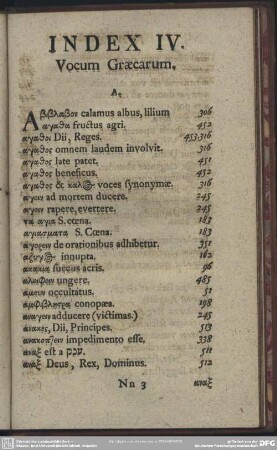 INDEX IV.
Vocum Græcarum.
A.
Αβιβλαβον calamus albus, lilium 306
αγαθα fructus agri. 452
αγαθοι Dii, Reges. 453.316
αγαθος omnem laudem involvit. 316
αγαθος late patet. 451
αγαθος beneficus. 452
αγαθος & καλος voces synonymæ. 316
αγειν ad mortem ducere. 245
αγειν rapere, evertere. 245
τα αγια S. cœna. 183
αγιασματα S. Cœna. 183
αγορειν de orationibus adhibetur. 351
αζυγος innupta. 162
ακακια succus acris. 96
αλειφειν ungere. 485
αμαυν occultatus. 51
αμφιβληστρα conopæa. 198
αναγειν adducere (victimas.) 245
ανακες, Dii, Principes. 513
ανακοπτειν impedimento esse. 338
αναξ est a ענק. 511
αναξ Deus, Rex, Dominus. 512
Nn 3 αναξ